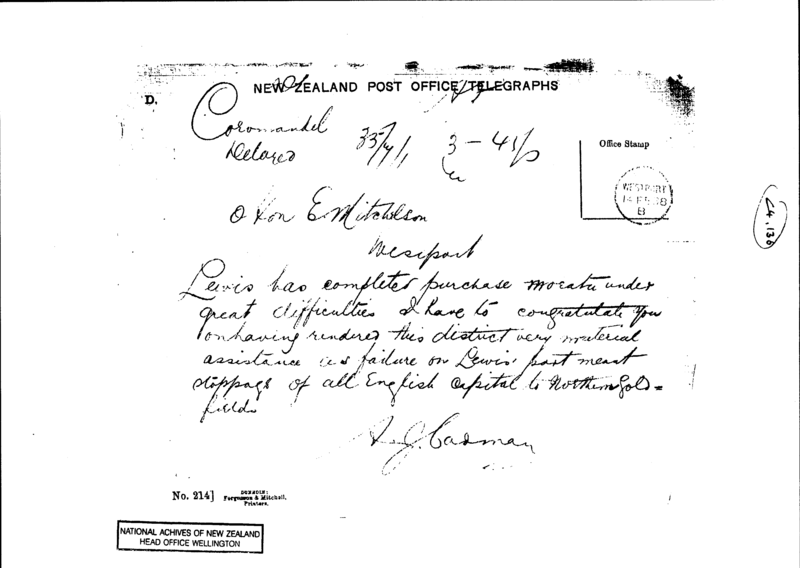 NEW ZEALAND POST OFFICE TELEGRAPHS
D.
Coromandel
Delayed
Office Stamp
WESTPORT
B
Hon E. Mitchelson
Westport
Lewis has completed purchase under
great difficulties I have to congratulate you
on having rendered this district very material
assistance as failure on Lewis part meant
stoppage of all English capital to Northern Gold=
fields
A. J. Cadman
L4.136
No. 214]
DUNEDIN:
Fergusson & Mitchell,
Printers.
NATIONAL ACHIVES OF NEW ZEALAND
HEAD OFFICE WELLINGTON